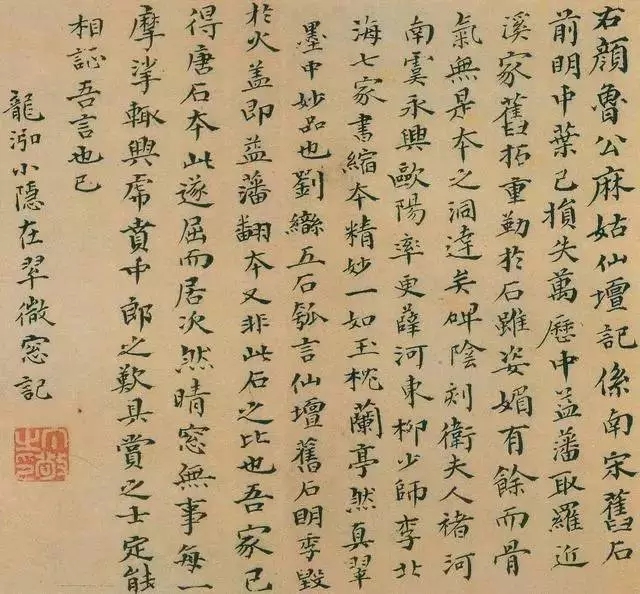 右顔魯公麻姑仙壇記係南宋舊石
前明中葉已損失萬歷中益藩取羅近
溪家舊拓重勒於石雖姿媚有餘而骨
氣無是本之洞達矣碑陰刻衛夫人褚河
南虞永興歐陽率更薛河東柳少師李北
海七家書縮本精妙一如玉枕蘭亭然真翠
墨中妙品也劉巒五石瓠言仙壇舊石明季毀
於火盖即益藩翻本又非此石之比也吾家已
得唐石本此遂屈而居次然晴窓無事每一
摩挲輒興虎賁中郎之歎具賞之士定能
相証吾言也已
龍泓小隱在翠微窓記